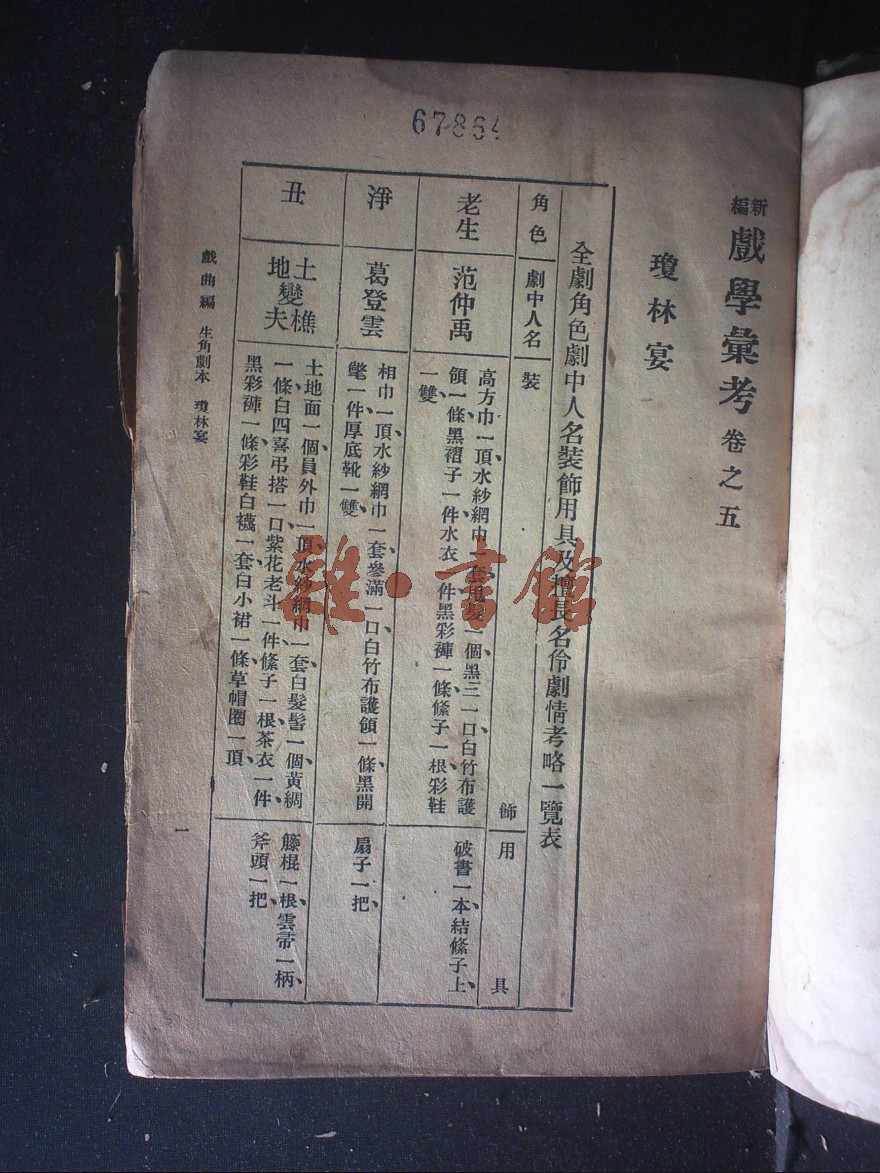 67864
新編戲學彙考卷之五
瓊林宴
全劇角色劇中人名裝飾用具及擅長名伶劇情考略一覽表
角色
劇中人名
裝飾
用具
老生
范仲禹
高方巾一頂、水紗網巾一套、甩髮一個、黑三一口、白竹布護
領一條、黑褶子一件、水衣一件、黑彩褲一條、絛子一根、彩鞋
一雙、
破書一本、結絛子上、
淨
葛登雲
相巾一頂、水紗網巾一套、參滿一口、白竹布護領一條、黑開
氅一件、厚底靴一雙、
扇子一把、
丑
土地變樵夫
土地面一個、員外巾一頂、水紗網巾一套、白髮髻一個、黃綢
一條、白四喜弔搭一口、紫花老斗一件、絛子一根、茶衣一件、
黑彩褲一條、彩鞋白襪一套、白小裙一條、草帽圈一頂、
籐棍一根、雲帚一柄、
斧頭一把、
戲曲編 生角劇本 瓊林宴
一
雜·書館